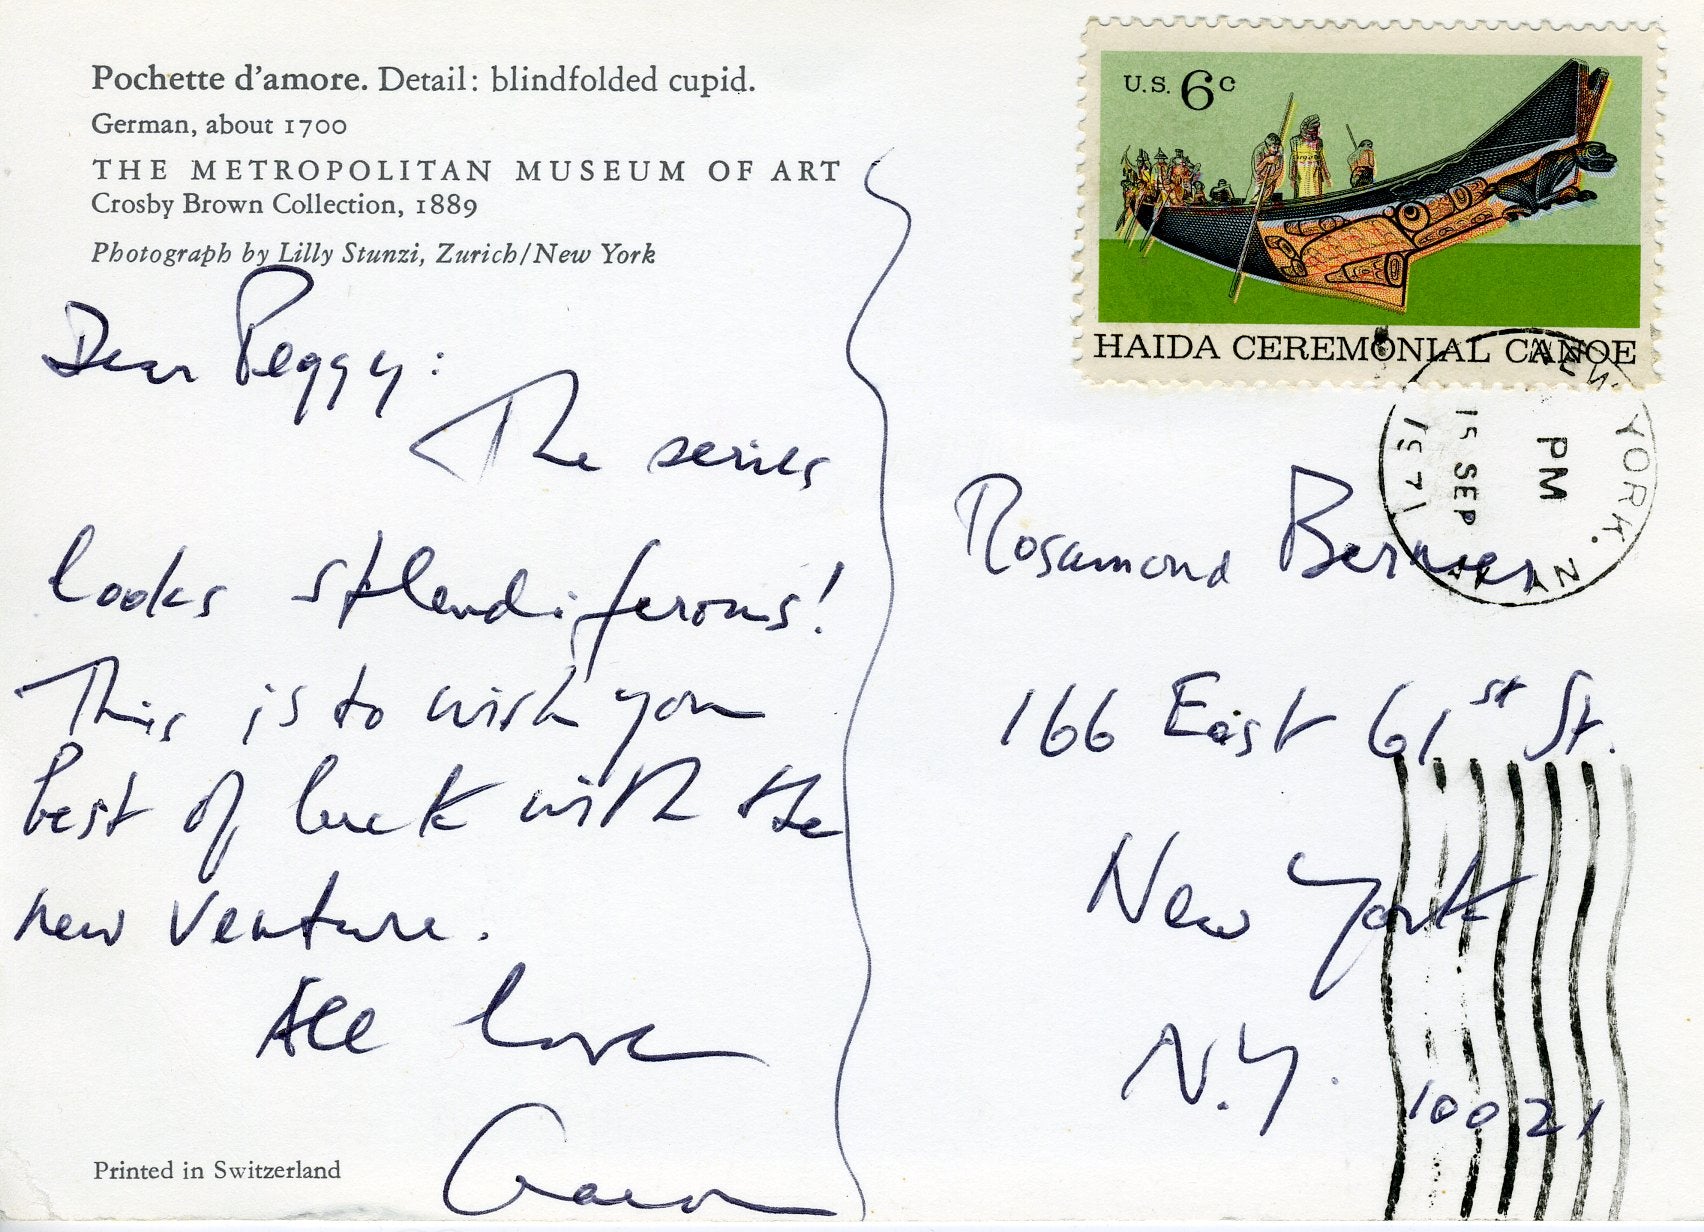 Pochette d'amore. Detail: blindfolded cupid.
German, about 1700
THE METROPOLITAN MUSEUM OF ART
Crosby Brown Collection, 1889
Photograph by Lilly Stunzi, Zurich/New York
Dear Peggy:
The series
looks splendiferous!
This is to wish you
best of luck with the
new venture.
All love
Printed in Switzerland
U.S. 6c
HAIDA CEREMONIAL CANOE
NEW YORK, N.Y.
PM
15 SEP
1971
Rosamond Bernier
166 East 61st St.
New York
N.Y. 10021